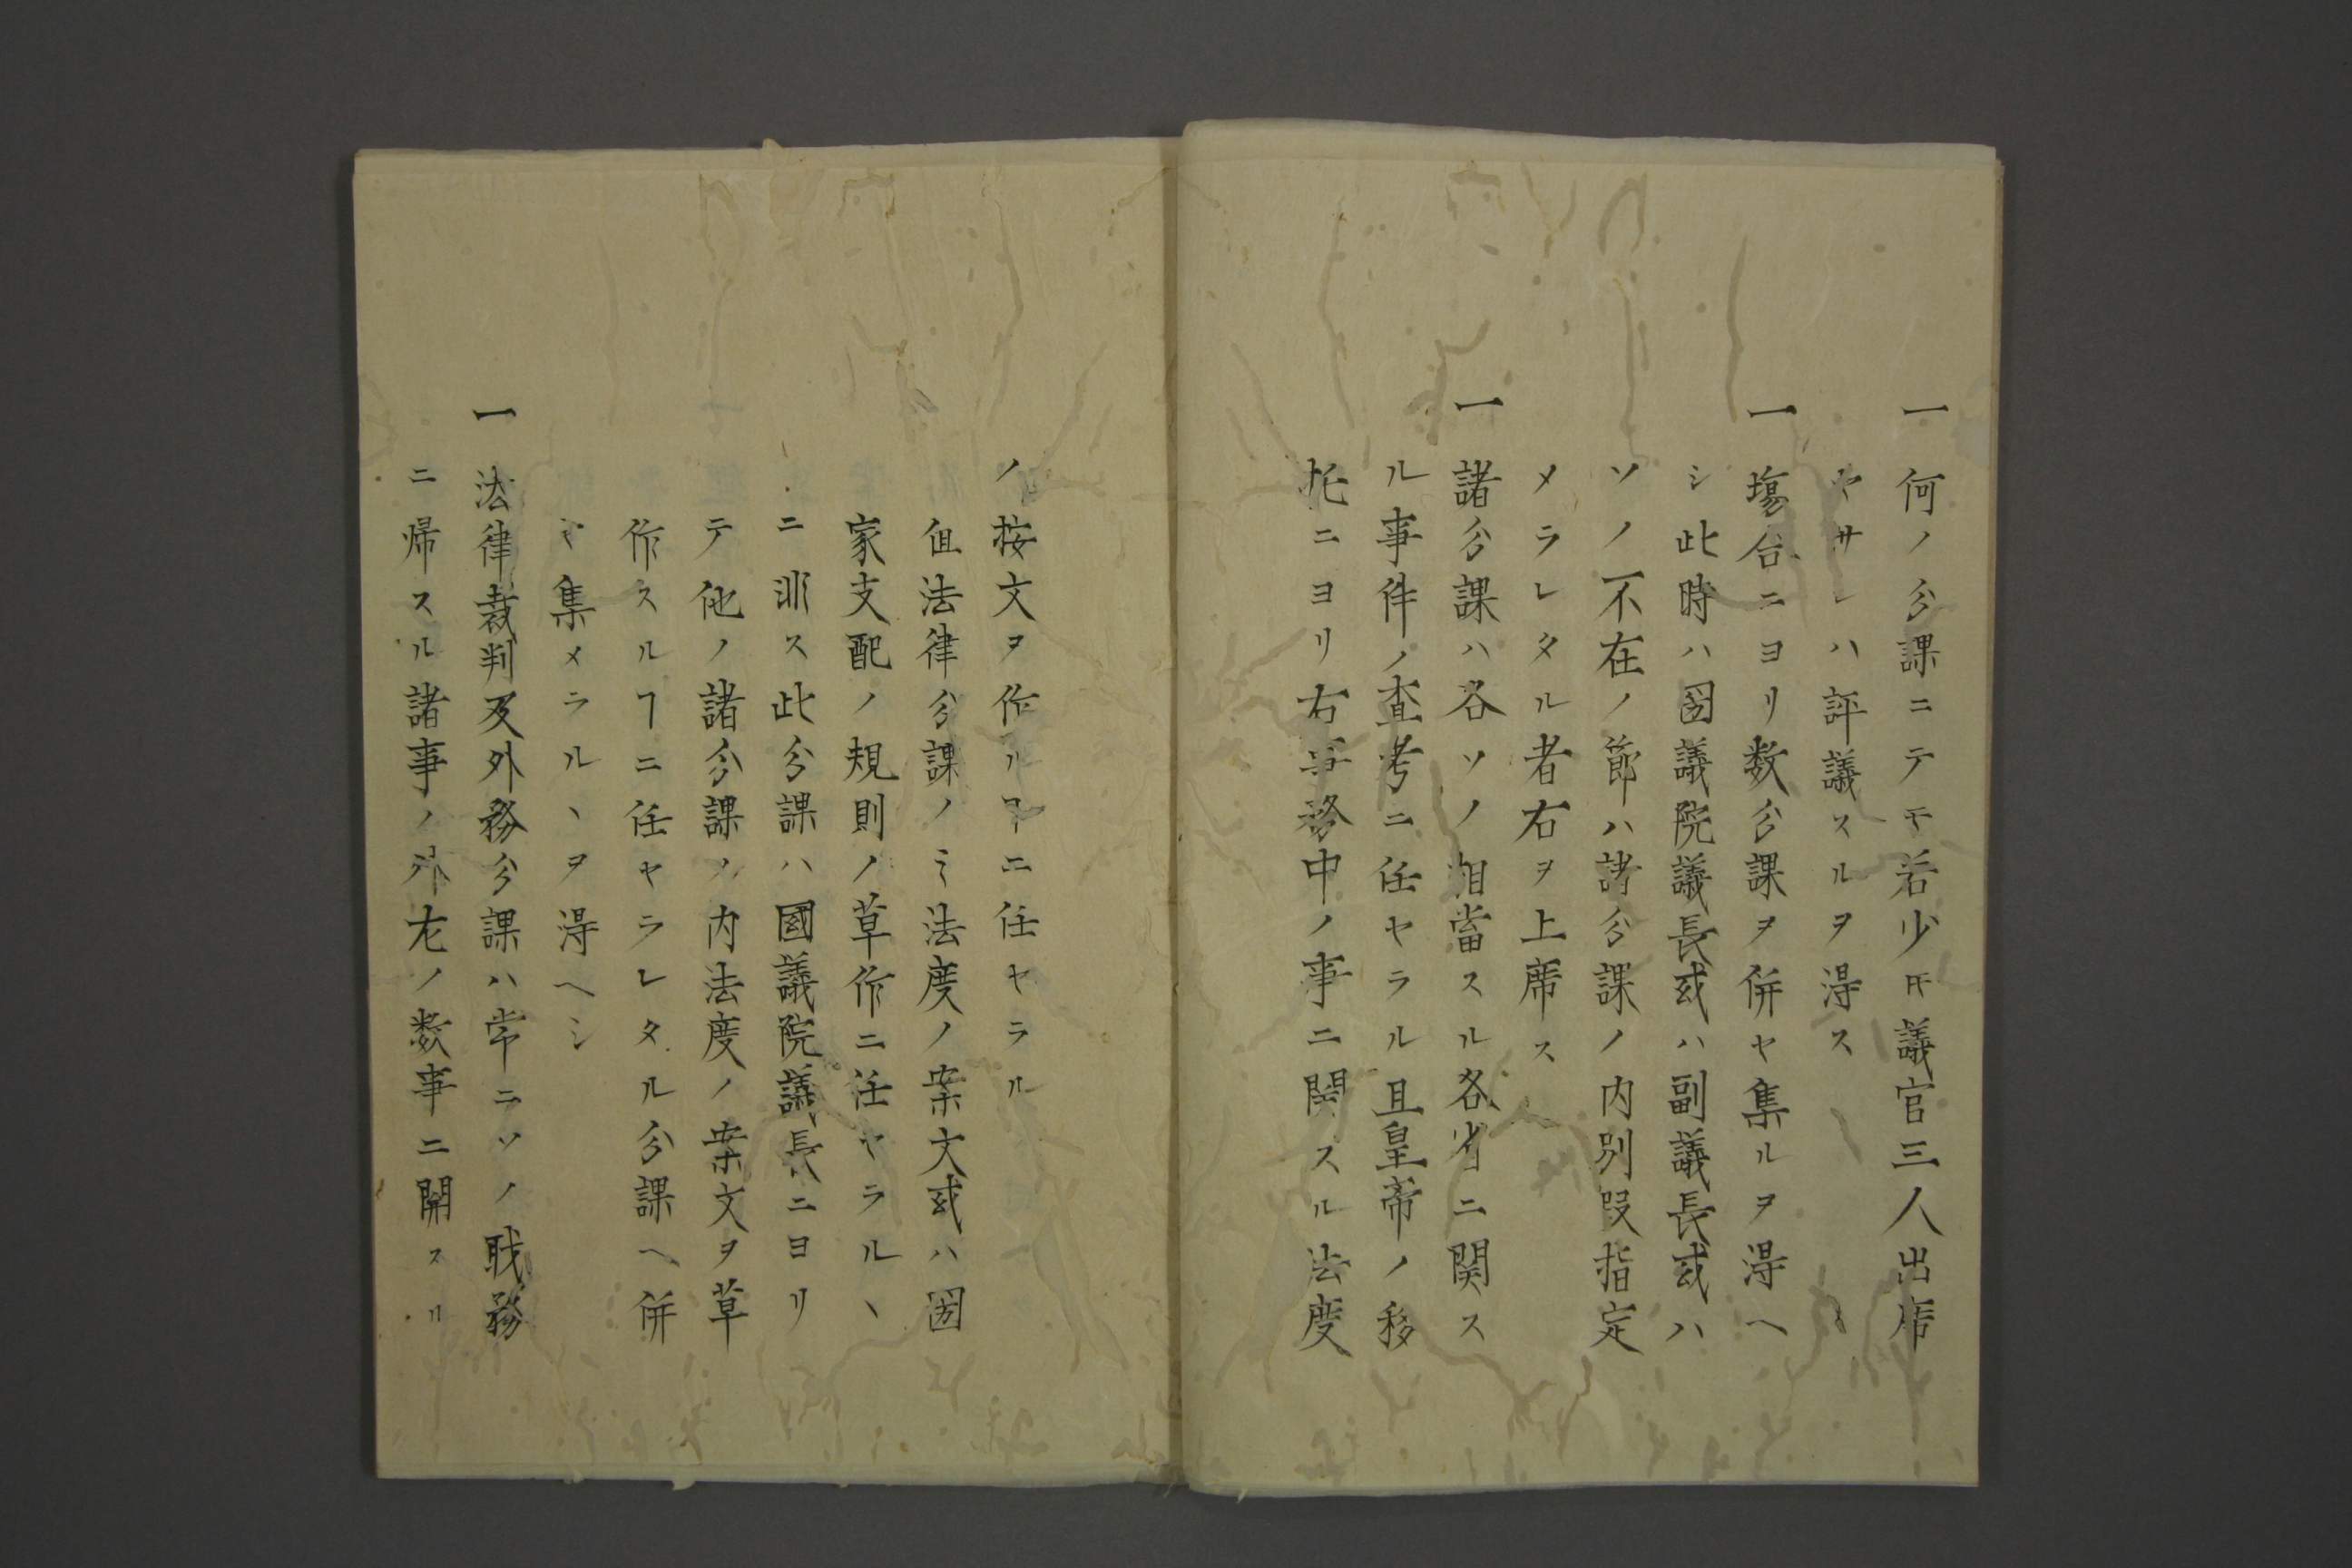 一何ノ分課ニテモ若少𪜈議官三人出席
セサレハ評議スルヲ得ス
一場合ニヨリ数分課ヲ併セ集ルヲ得ヘ
シ此時ハ国議院議長或ハ副議長或ハ
ソノ不在ノ節ハ諸分課ノ内別段指定
メラレタル者右ヲ上席ス
一諸分課ハ各ソノ相當スル各省ニ関ス
ル事件ノ査考ニ任セラル且皇帝ノ移
托ニヨリ右事務中ノ事ニ関スル法度
ノ按文ヲ作ルヿニ任セラル
但法律分課ノミ法度ノ案文或ハ国
家支配ノ規則ノ草作ニ任セラルヽ
ニ非ス此分課ハ國議院議長ニヨリ
テ他ノ諸分課ノ内法度ノ案文ヲ草
作スルヿニ任セラレタル分課ヘ併
セ集メラルヽヲ得ヘシ
一法律裁判及外務分課ハ常ニソノ職務
ニ帰スル諸事ノ外左ノ数事ニ関スル